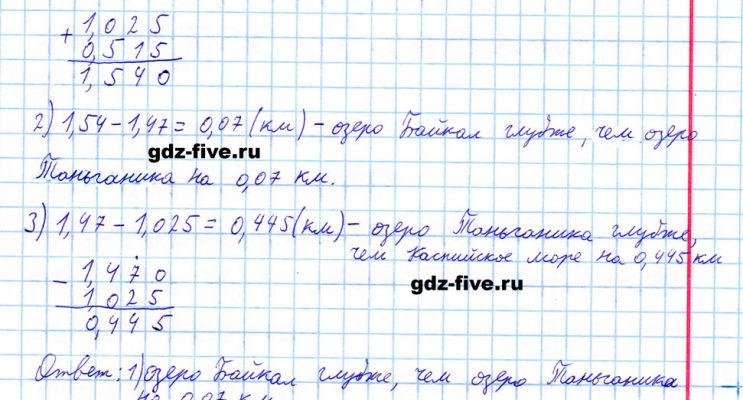 + 1,025
0,515
1,540
2) 1,54 – 1,47 = 0,07 (км) – озеро Байкал глубже, чем озеро
gdz-five.ru
Таньганика на 0,07 км.
3) 1,47 – 1,025 = 0,445 (км) – озеро Таньганика глубже,
чем Каспийское море на 0,445 км
gdz-five.ru
– 1,470
1,025
0,445
Ответ: 1) озеро Байкал глубже, чем озеро Таньганика
на 0,07 км